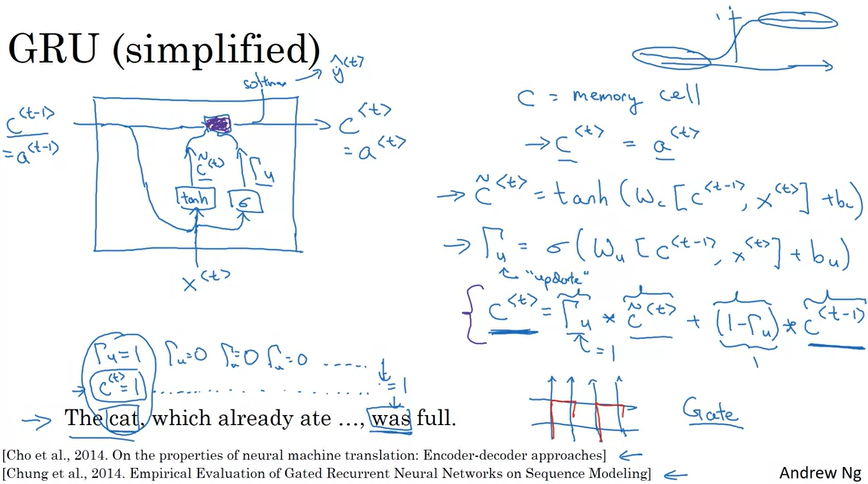 GRU (simplified)
1
softmax
ŷ<t>
c<t-1>
=a<t-1>
c<t>
=a<t>
c̃<t>
Γu
tanh
σ
x<t>
C = memory cell
→ c<t> = a<t>
→ c̃<t> = tanh(Wc[c<t-1>, x<t>] + bc)
→ Γu = σ(Wu[c<t-1>, x<t>] + bu)
"update"
c<t> = Γu * c̃<t> + (1-Γu) * c<t-1>
=1
1
Γu=1 Γu=0 Γu=0 Γu=0 .....
c<t>=1 ..... =1
→ The cat, which already ate …, was full.
Gate
[Cho et al., 2014. On the properties of neural machine translation: Encoder-decoder approaches] ←
[Chung et al., 2014. Empirical Evaluation of Gated Recurrent Neural Networks on Sequence Modeling] ←
Andrew Ng